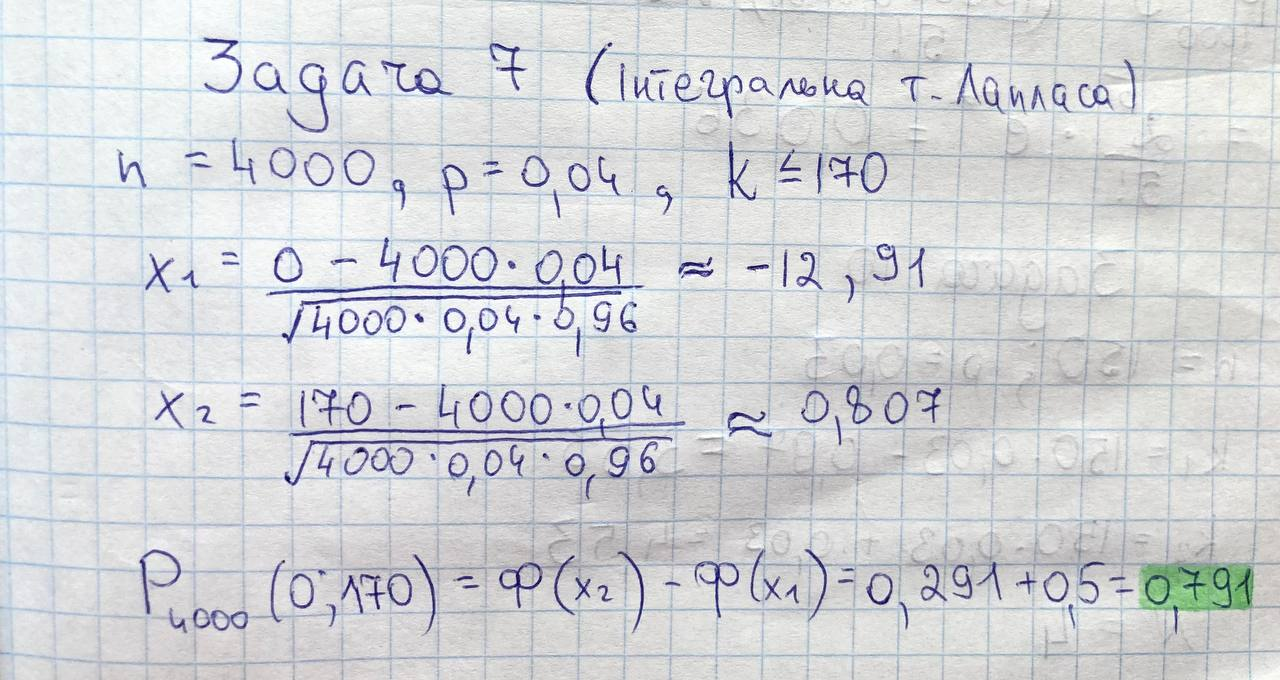 Задача 7 (Інтегральна т. Лапласа)
n = 4000, p = 0,04, k ≤ 170
x₁ = (0 - 4000 · 0,04) / √(4000 · 0,04 · 0,96) ≈ -12,91
x₂ = (170 - 4000 · 0,04) / √(4000 · 0,04 · 0,96) ≈ 0,807
P₄₀₀₀(0; 170) = Ф(x₂) - Ф(x₁) = 0,291 + 0,5 = 0,791